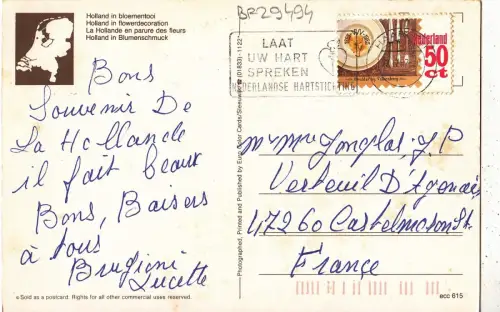 Holland in bloementooi
Holland in flowerdecoration
La Hollande en parure des fleurs
Holland in Blumenschmuck
BP29494
LAAT
UW HART
SPREKEN
NEDERLANDSE HARTSTICHTING
Nederland
50
ct
Bons
Souvenir De
La Hollande
il fait beaux
Bons, Baisers
à tous
Brugioni
Lucette
Photographed, Printed and Published by Euro Color Cards/
(01833)-1122
Mr Mme Jonglas, J. P
Verteuil D'Agenais
47260 Castelmoron St.
France
Sold as a postcard. Rights for all other commercial uses reserved.
ecc 615